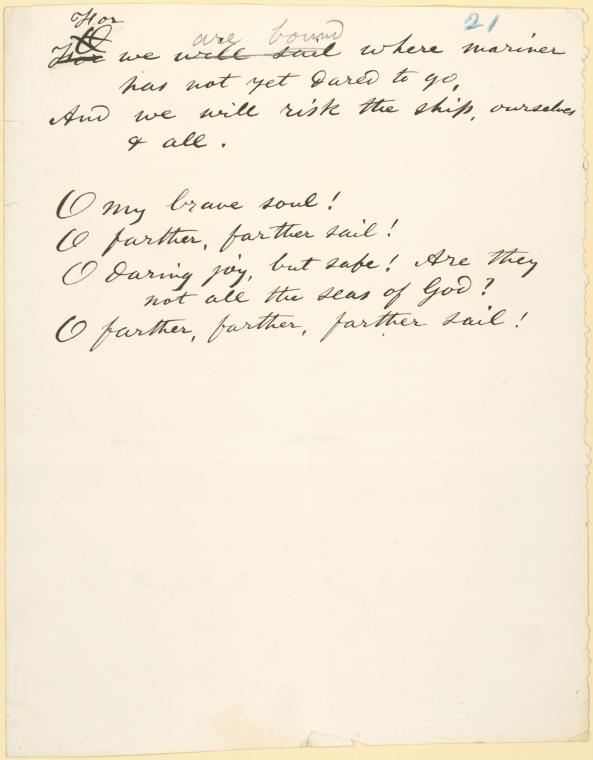 For
O are bound 21
For we will sail where mariner
has not yet dared to go,
And we will risk the ship, ourselves
& all.
O my brave soul!
O farther, farther sail!
O daring joy, but safe! Are they
not all the seas of God?
O farther, farther, farther sail!